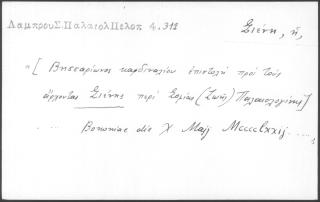 Λαμπρου Σ. Παλαιολ Πελοπ 4.312
Σιένη, ἡ,
"[ Βησσαρίωνος καρδιναλίου ἐπιστολὴ πρὸς τοὺς
ἄρχοντας Σιένης περὶ Σοφίας (Ζωῆς) Παλαιολογίνης]
.... Bononiae die X Maij Mcccclxxij .....